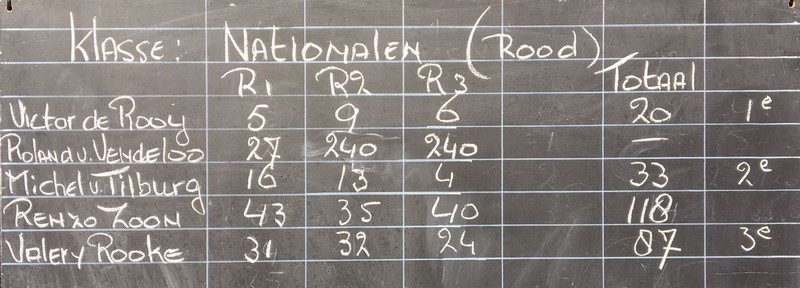 Klasse: Nationalen (Rood)
R1 R2 R3 Totaal
Victor de Rooij 5 9 6 20 1e
Roland v. Vendeloo 27 240 240 —
Michel v. Tilburg 16 13 4 33 2e
Renzo Zoon 43 35 40 118
Valery Rooke 31 32 24 87 3e